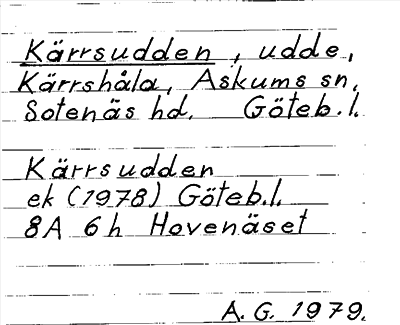 Kärrsudden, udde,
Kärrshåla, Askums sn.
Sotenäs hd. Göteb.l.
Kärrsudden
ek (1978) Göteb.l.
8A 6h Hovenäset
A. G. 1979.